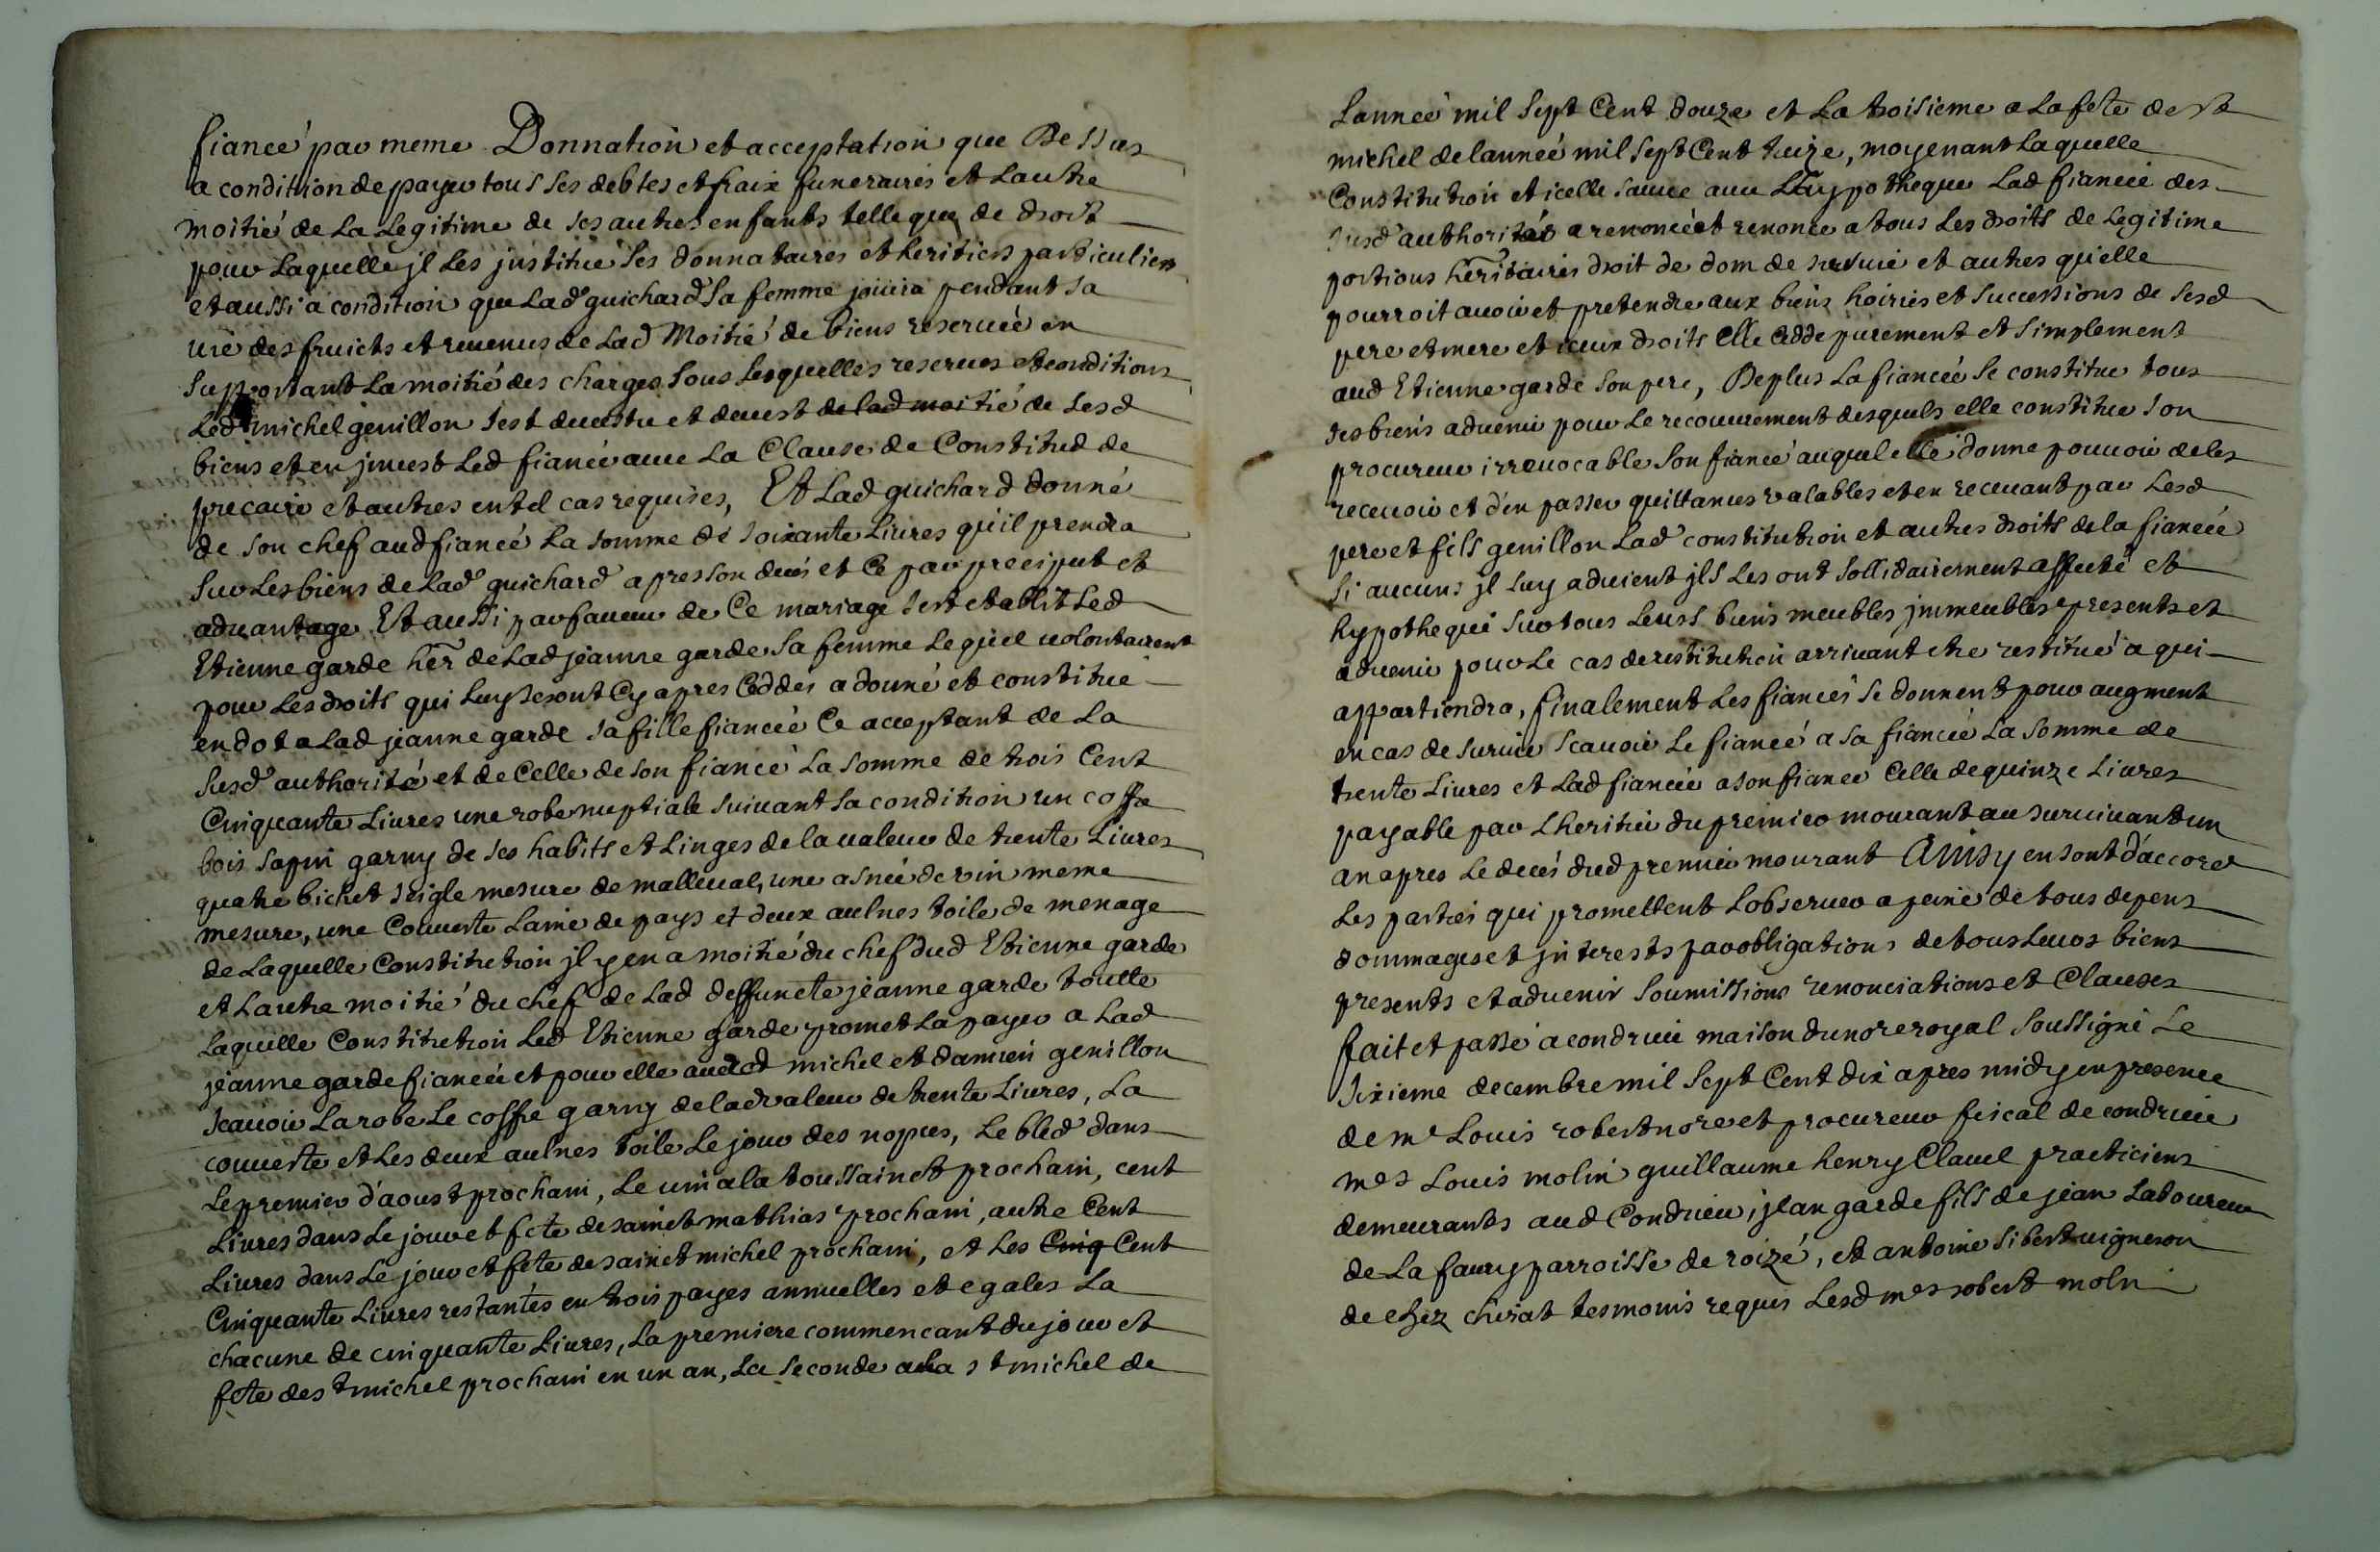 fiancé par meme Donnation et acceptation que Dessus
a condition de payer tous ses debtes et fraix funeraires et Lautre
moitié de La Legitime de ses autres enfants telle que de droit
pour Laquelle jl Les jnstitue Ses donnataires et heritiers particuliers
et aussi a condition que Lad guichard Sa femme jouira pendant sa
vie des fruicts et revenus de Lad Moitié de biens reservée en
Supportant La moitié des charges Sous Lesquelles reserves et conditions
Led michel genillon Sest devestu et devest de lad moitié de Sesd
biens et en jnvest Led fiancé avec La Clause de Constitud de
precaire et autres en tel cas requises, Et Lad guichard donné
de Son chef aud fiancé La Somme de Soixante Livres qu'il prendra
Sur Les biens de Lad guichard apres Son decés et Ce par preciput et
advantage Et aussi par faveur de Ce mariage Sest etablit Led
Etienne garde her de Lad jeanne garde Sa femme Lequel volontairemt
pour Les droits qui Luy Seront Cy apres Ceddés a donné et constitué
en dot a Lad jeanne garde Sa fille fiancée Ce acceptant de La
Susd authorité et de Celle de Son fiancé La Somme de trois Cent
Cinquante Livres une robe nuptiale Suivant Sa condition un coffre
bois Sapin garny de Ses habits et Linges de la valeur de trente Livres
quatre bichet Seigle mesure de malleval, une asnée de vin meme
mesure, une Couverte Laine de pays et deux aulnes toile de menage
de Laquelle Constitution jl y en a moitié du chef dud Etienne garde
et Lautre moitié du chef de Lad deffuncte jeanne garde toutte
Laquelle Constitution Led Etienne garde promet La payer a Lad
jeanne garde fiancée et pour elle auxd michel et damien genillon
Scavoir La robe Le coffre garny de lad valeur de trente Livres, La
couverte et Les deux aulnes toile Le jour des nopces, Le bled dans
Le premier d'aoust prochain, Le vin a la toussainct prochain, cent
Livres dans Le jour et fete de sainct mathias prochain, autre Cent
Livres dans Le jour et fete de sainct michel prochain, et Les Cinq Cent
Cinquante Livres restantes en trois payes annuelles et egales La
chacune de cinquante Livres, La premiere commencant du jour et
fete de st michel prochain en un an, La Seconde a La st michel de
Lannée mil Sept Cent douze et La troisieme a La fete de st
michel de lannée mil Sept Cent treize, moyenant Laquelle
Constitution et icelle Sauve avec LHypotheque Lad fiancée des
Susd authorités a renoncé et renonce a tous Les droits de Legitime
portions hereditaires droit de dom de survie et autres qu'elle
pourroit avoir et pretendre aux biens hoiries et Successions de Sesd
pere et mere et iceux droits Elle Cedde purement et Simplement
aud Etienne garde Son pere, Deplus La fiancée Se constitue tous
Ses biens advenir pour Le recouvrement desquels elle constitue Son
procureur irrevocable Son fiancé auquel elle donne pouvoir de les
recevoir et d'en passer quittances valables et en recevant par Lesd
pere et fils genillon Lad constitution et autres droits de la fiancée
Si aucuns jl Luy advient jls Les ont Sollidairement affecté et
hypothequé Sur tous Leurs biens meubles jmmeubles presents et
advenir pour Le cas de restitution arrivant etre restitué a qui
appartiendra, finalement Les fiancés Se donnent pour augment
en cas de Survie Scavoir Le fiancé a Sa fiancée La Somme de
trente Livres et Lad fiancée a Son fiancé Celle de quinze Livres
payable par Lheritier du premier mourant au Survivant un
an apres Le decés dud premier mourant Ainsy en sont d'accord
Les parties qui promettent Lobserver a peine de tous depens
dommages et jnterests par obligations de tous Leurs biens
presents et advenir Soumissions renonciations et Clauses
fait et passé a condrieu maison du nore royal Soussigné Le
Sixieme decembre mil Sept Cent dix apres midy en presence
de me Louis robert nore et procureur fiscal de condrieu
mes Louis molin guillaume henry Clavel practiciens
demeurants aud Condrieu, jean garde fils de jean Laboureur
de La faury parroisse de roizé, et antoine Sibert vigneron
de chez chirat tesmoins requis Lesd mes robert molin